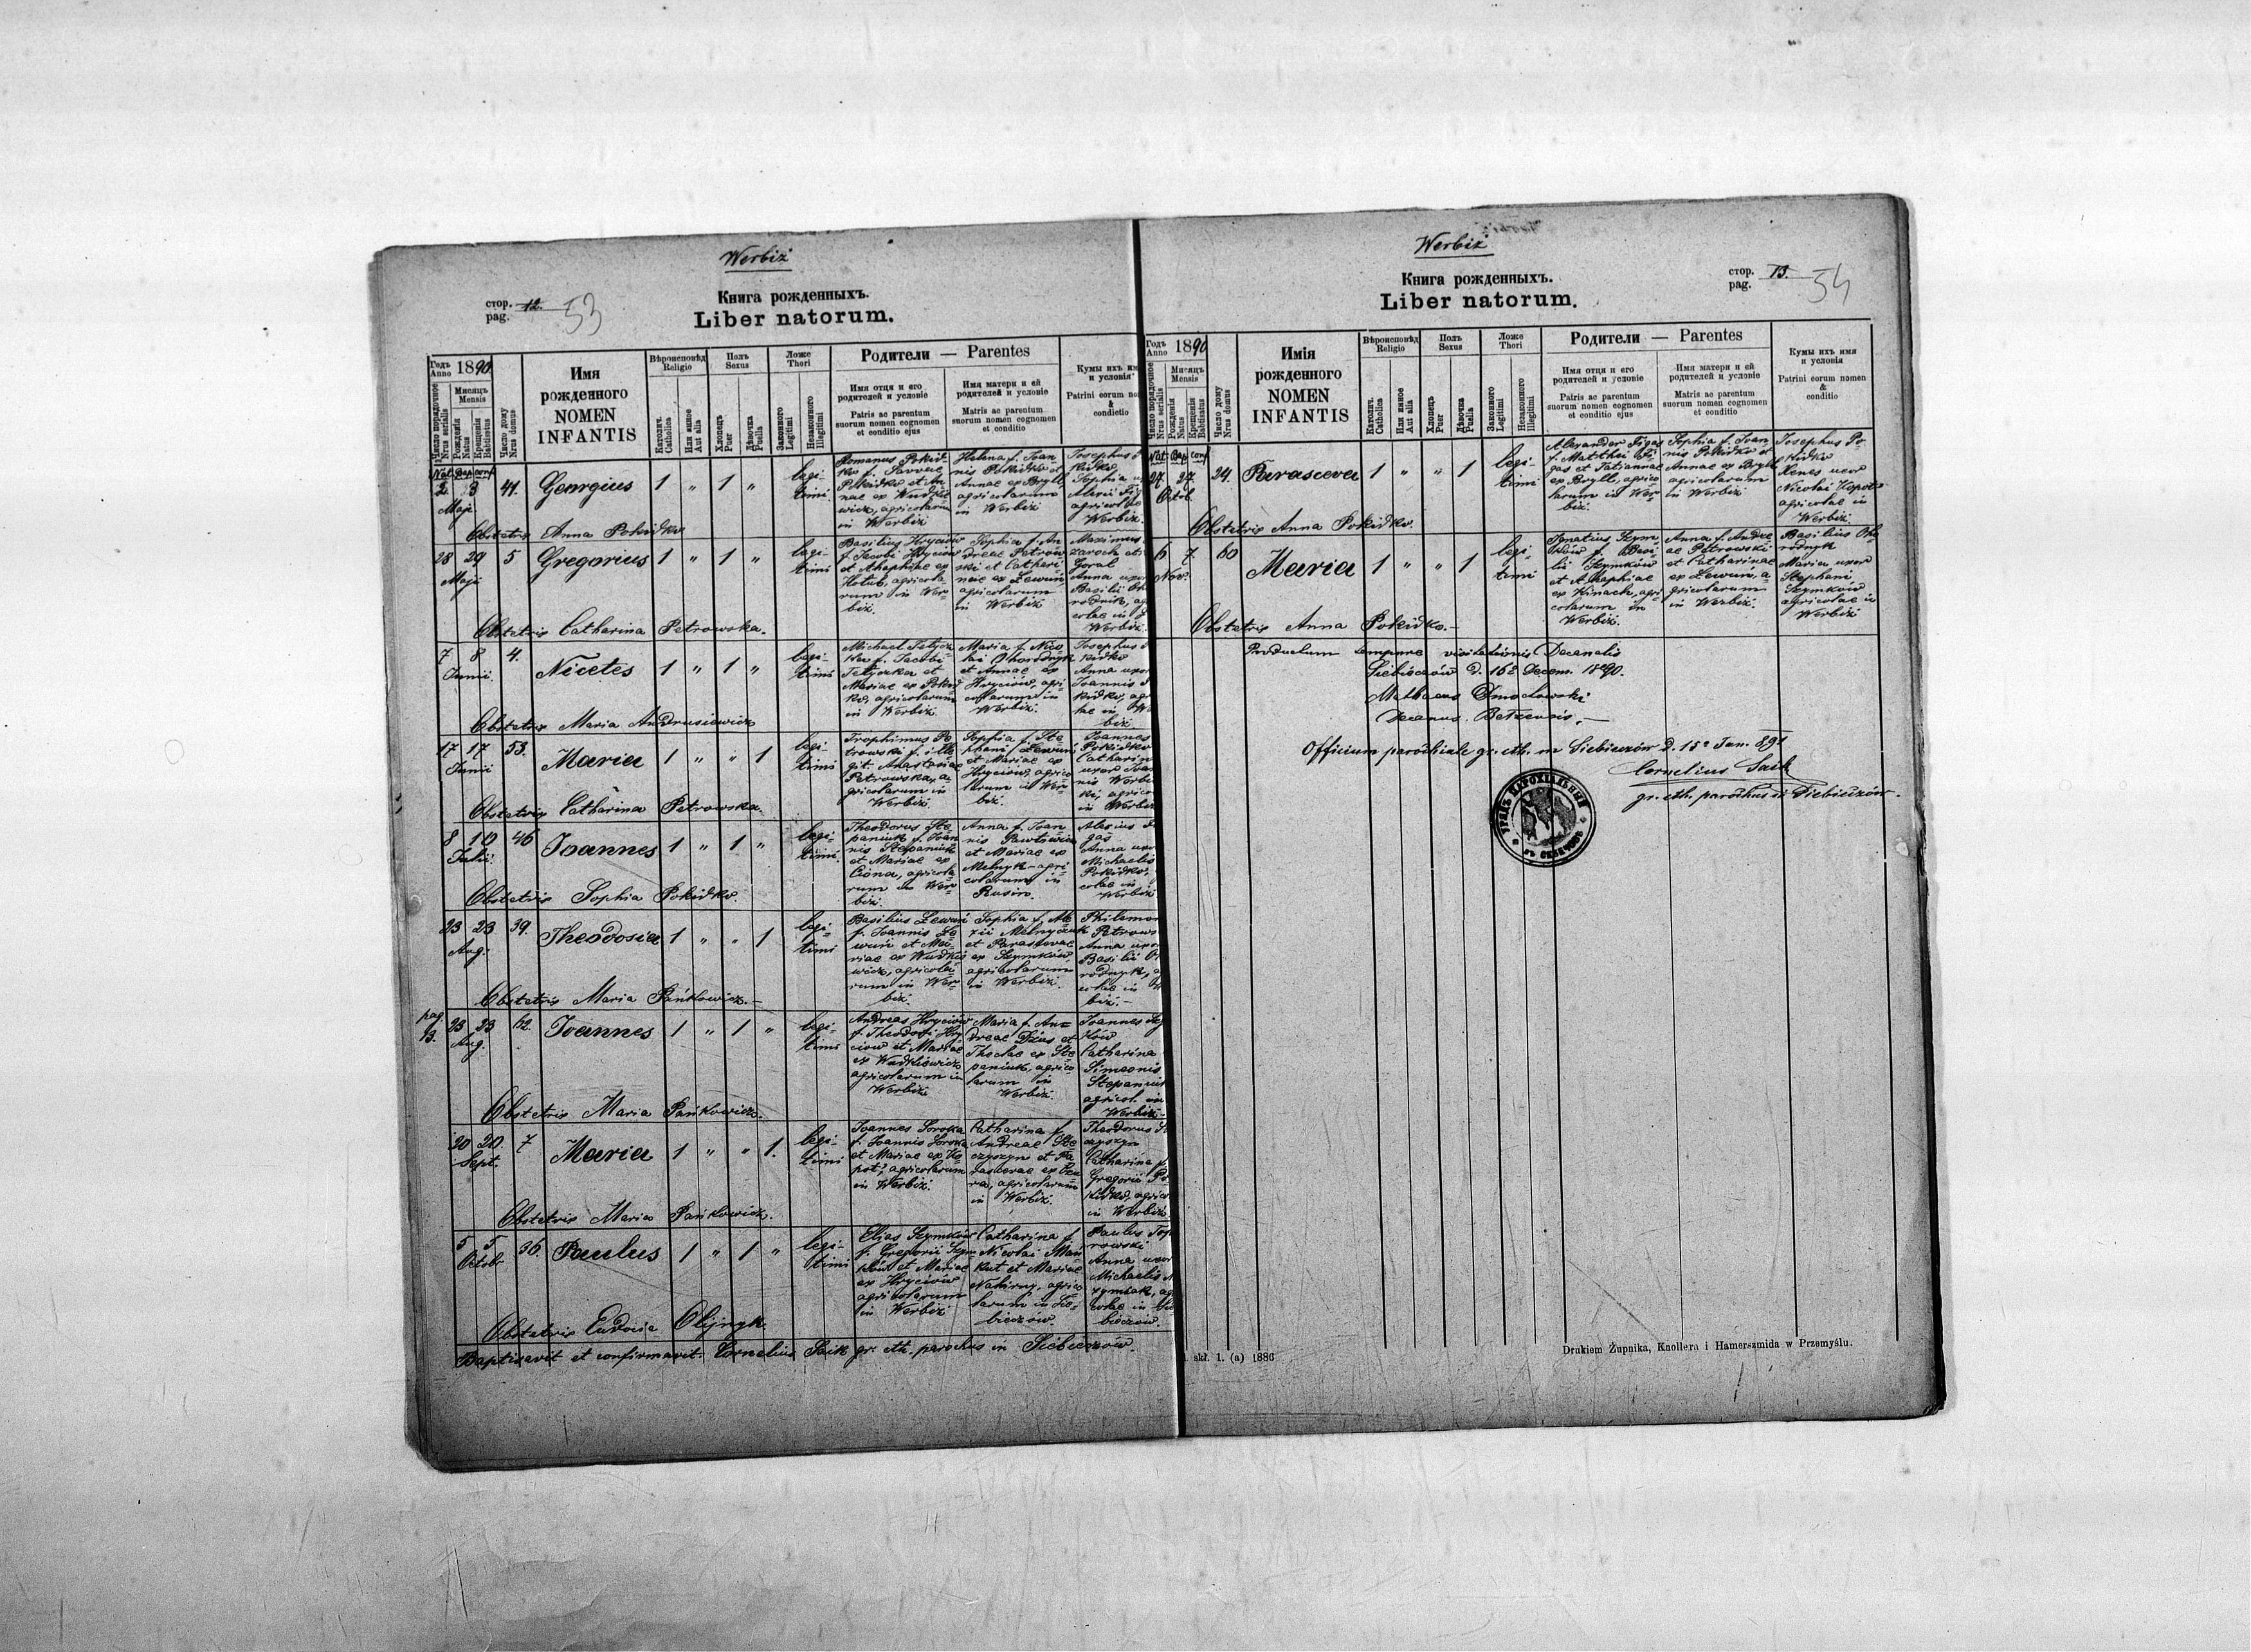 Werbiż
стор. 12.
pag.
53
Книга рожденныхъ.
Liber natorum.
Годъ 1890
Anno
Число порядочное
Nrus serialis
Мисяцъ
Mensis
Рожденія
Natus
Крещенія
Babtisatus
Число дому
Nrus domus
Имя
рожденного
NOMEN
INFANTIS
Вѣроисповѣд
Religio
Католич.
Catholica
Или иное
Aut alia
Полъ
Sexus
Хлопецъ
Puer
Дѣвочка
Puella
Ложе
Thori
Законного
Legitimi
Незаконного
Illegitimi
Родители — Parentes
Имя отця и его
родителей и условіе
Patris ac parentum
suorum nomen cognomen
et conditio ejus
Имя матери и ей
родителей и условіе
Matris ac parentum
suorum nomen cognomen
et conditio
Кумы ихъ им
и условія
Patrini eorum no
&
condictio
Nat. Bap. conf.
2 3
Maji
41.
Georgius
1 " 1 "
legi-
timi
Romanus Pokid-
ko f. Savvae
Pokidko et An-
nae ex Wudkie
wicz, agricolarum
in Werbiż
Helena f. Ioan
nis Pokidko et
Annae ex Bryll
agricolarum
in Werbiż
Josephus
kidko
Sophia
Alexii
agricol
Werbiż.
Obstetrix Anna Pokidko
28 29
Maji
5
Gregorius
1 " 1 "
legi-
timi
Basilius Hryciów
f. Jacobi Hryciów
et Ahaphiae ex
Hołub, agricola-
rum in Wer-
biż.
Sophia f. An
dreae Petrow
ski et Cathari
nae ex Lewuń
agricolarum
in Werbiż
Maximus
zaroch et
Goral
Anna uxor
Basilii
rodnik, ag
colae in
Werbiż.
Obstetrix Catharina Petrowska.
7 8
Junii.
4.
Nicetes
1 " 1 "
legi-
timi
Michael Tetycz-
ka f. Jacobi
Tetyczka et
Mariae ex Pokid
ko, agricolarum
in Werbiż
Maria f. Nico
lai Ohorodnyk
et Annae ex
Hryciów, agri
colarum in
Werbiż.
Josephus
kidko
Anna uxor
Joannis
kidko, agr
lae in W
biż
Obstetrix Maria Andrusiewicz
17 17
Junii
53.
Maria
1 " " 1
legi-
timi
Trophimus Pe
trowski f. ille
git. Anastasiae
Petrowska, a-
gricolarum in
Werbiż
Sophia f. Ste
phani Lewuń
et Mariae ex
Hryciów, agrico
larum in Wer-
biż.
Joannes
Pokidko
Catharina
uxor Joan
nis Werbi
ki, agrico
in Werbiż
Obstetrix Catharina Petrowska
8 10
Julii.
46
Joannes
1 " 1 "
legi-
timi
Theodorus Ste
paniuk f. Joan
nis Stepaniuk
et Mariae ex
Ciona, agricola
rum in Wer-
biż.
Anna f. Joan
nis Pawłiwicz
et Mariae ex
Melnyk - agri
colarum in
Rusin.
Alexius
gas
Anna uxor
Michaelis
Pokidko
colae in
Werbiż
Obstetrix Sophia Pokidko.
23 23
Aug.
39.
Theodosia
1 " " 1
legi-
timi
Basilius Lewuń
f. Joannis Le
wuń et Ma-
riae ex Wudkie
wicz, agricola-
rum in Wer-
biż.
Sophia f. Ale
xii Melnyczuk
et Parascevae
ex Szymków,
agricolarum
in Werbiż.
Philemon
Petrows
Anna uxor
Basilii
rodnyk, a
colae in W
biż.
Obstetrix Maria Pańkowicz.
pag.
13.
23 23
Aug.
62.
Joannes
1 " 1 "
legi-
timi
Andreas Hryciów
f. Theodosi Hry
ciów et Mariae
ex Wudkiewicz
agricolarum in
Werbiż
Maria f. An-
dreae Dżus et
Theclae ex Ste
paniuk, agrico-
larum in
Werbiż.
Joannes
ków
Catharina
Simeonis
Stepaniuk
agricol. in
Werbiż
Obstetrix Maria Pańkowicz.
20 20
Sept.
7
Maria
1 " " 1.
legi-
timi
Joannes Soroka
f. Joannis Soroka
et Mariae ex Ko
pot, agricolarum
in Werbiż.
Catharina f.
Andreae Ste
czyszyn et Pa
rascevae ex
ra, agricolarum
in Werbiż.
Theodorus
czyszyn
Catharina f.
Gregorii Po
kidko, agrico
in Werbiż
Obstetrix Maria Pańkowicz.
5 5
Octobr
36.
Paulus
1 " 1 "
legi-
timi
Elias Szymków
f. Gregorii Szym-
ków et Mariae
ex Hryciów
agricolarum
in Werbiż
Catharina f.
Nicolai Mań
kut et Mariae
Nahirny, agrico
larum in Sie-
bieczów.
Paulus Top
rowski
Anna uxor
Michaelis
zymiak, ag
colae in Sie
bieczów.
Obstetrix Eudocia Olijnyk.
Baptisavit et confirmavit: Cornelius Saik gr. cth. parochus in Siebieczów.
Werbiż
стор. 13.
pag.
54
Книга рожденныхъ.
Liber natorum.
Годъ 1890
Anno
Число порядочное
Nrus serialis
Мисяцъ
Mensis
Рожденія
Natus
Крещенія
Babtisatus
Число дому
Nrus domus
Имія
рожденного
NOMEN
INFANTIS
Вѣроисповѣд
Religio
Католич.
Catholica
Или иное
Aut alia
Полъ
Sexus
Хлопецъ
Puer
Дѣвочка
Puella
Ложе
Thori
Законного
Legitimi
Незаконного
Illegitimi
Родители — Parentes
Имя отця и его
родителей и условіе
Patris ac parentum
suorum nomen cognomen
et conditio ejus
Имя матери и ей
родителей и условіе
Matris ac parentum
suorum nomen cognomen
et conditio
Кумы ихъ имя
и условія
Patrini eorum nomen
&
conditio
Nat. Bap. conf.
27 27
Octob.
24.
Parasceva
1 " " 1
legi-
timi
Alexander Figas
f. Matthei Fi-
gas et Tatiannae
ex Bryll, agrico
larum in Wer-
biż.
Sophia f. Joan
nis Pokidko et
Annae ex Bryll
agricolarum
in Werbiż
Josephus Po-
kidko
Xenes uxor
Nicolai Kopot
agricolae in
Werbiż.
Obstetrix Anna Pokidko.
6 7.
Nov.
60
Maria
1 " " 1
legi-
timi
Ignatius Szym-
ków f. Basi-
lii Szymków
et Ahaphiae
ex Kinach, agri-
colarum in
Werbiż.
Anna f. Andre-
ae Petrowski
et Catharinae
ex Lewuń, a-
gricolarum
in Werbiż.
Basilius Oho
rodnyk
Maria uxor
Stephani
Szymków
agricolae in
Werbiż
Obstetrix Anna Pokidko.
Productum tempore visitationis Decanalis
Siebieczów d. 16º Decem. 1890.
Mathaeus
Decanus Bełzensis.
Officium parochiale gr. cth. in Siebieczów d. 15º Jan. 891
Cornelius Saik
gr. cth. parochus in Siebieczów.
УРЯДЪ ПАРОХІАЛЬНЫЙ
skł. 1. (a) 1886
Drukiem Żupnika, Knollera i Hamerszmida w Przemyślu.